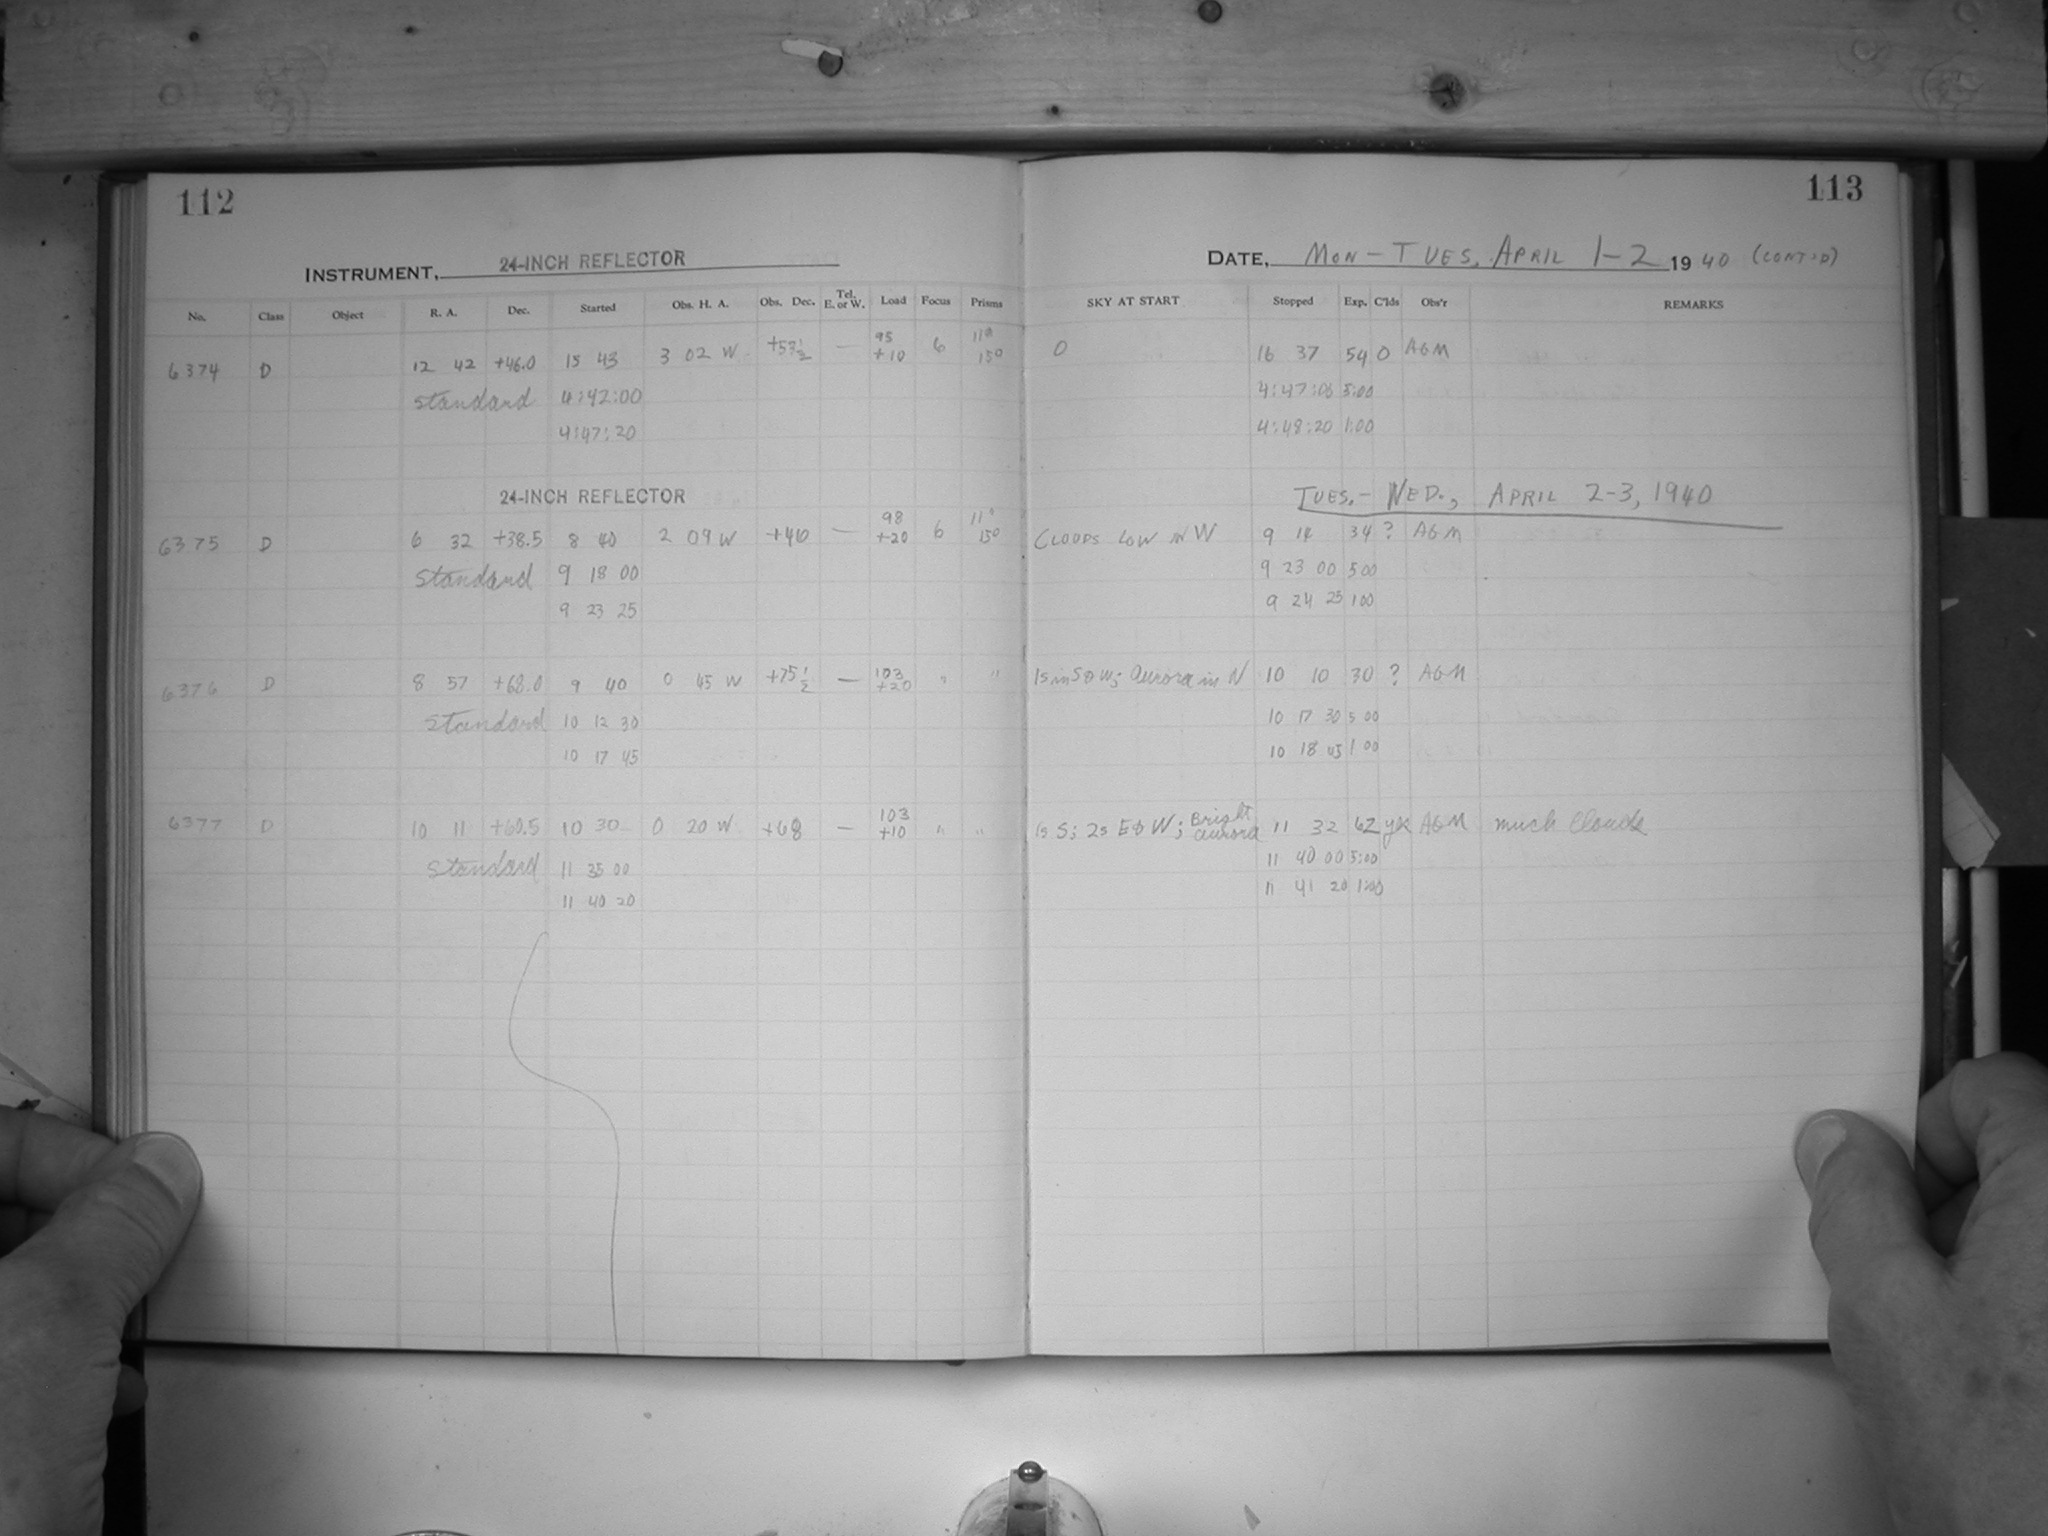 112
INSTRUMENT, 24-INCH REFLECTOR
No. Class Object R. A. Dec. Started Obs. H. A. Obs. Dec. Tel. E. or W. Load Focus Prisms
6374 D 12 42 +46.0 15 43 3 02 W +53½ — 95 +10 6 11° 15°
Standard 4:42:00
4:47:20
24-INCH REFLECTOR
6375 D 6 32 +38.5 8 40 2 09 W +46 — 98 +20 6 11° 15°
Standard 9 18 00
9 23 25
6376 D 8 57 +68.0 9 40 0 45 W +75½ — 103 +20 " "
Standard 10 12 30
10 17 45
6377 D 10 11 +60.5 10 30 0 20 W +68 — 103 +10 " "
Standard 11 35 00
11 40 20
113
DATE, MON - TUES. APRIL 1-2 1940 (CONT'D)
SKY AT START Stopped Exp. C'lds Obs'r REMARKS
0 16 37 54 0 AGM
4:47:00 5:00
4:48:20 1:00
TUES. - WED., APRIL 2-3, 1940
CLOUDS LOW IN W 9 14 34 ? AGM
9 23 00 5 00
9 24 25 1 00
1s in S & W; aurora in N 10 10 30 ? AGM
10 17 30 5 00
10 18 45 1 00
1s S; 2s E & W; Bright aurora 11 32 62 yes AGM much clouds
11 40 00 5:00
11 41 20 1:00